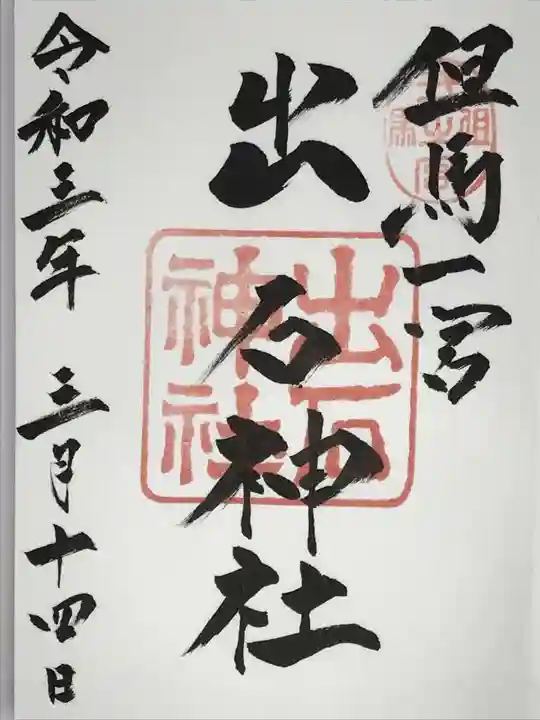 但馬一宮
出石神社
出石
神社
令和三年 三月十四日